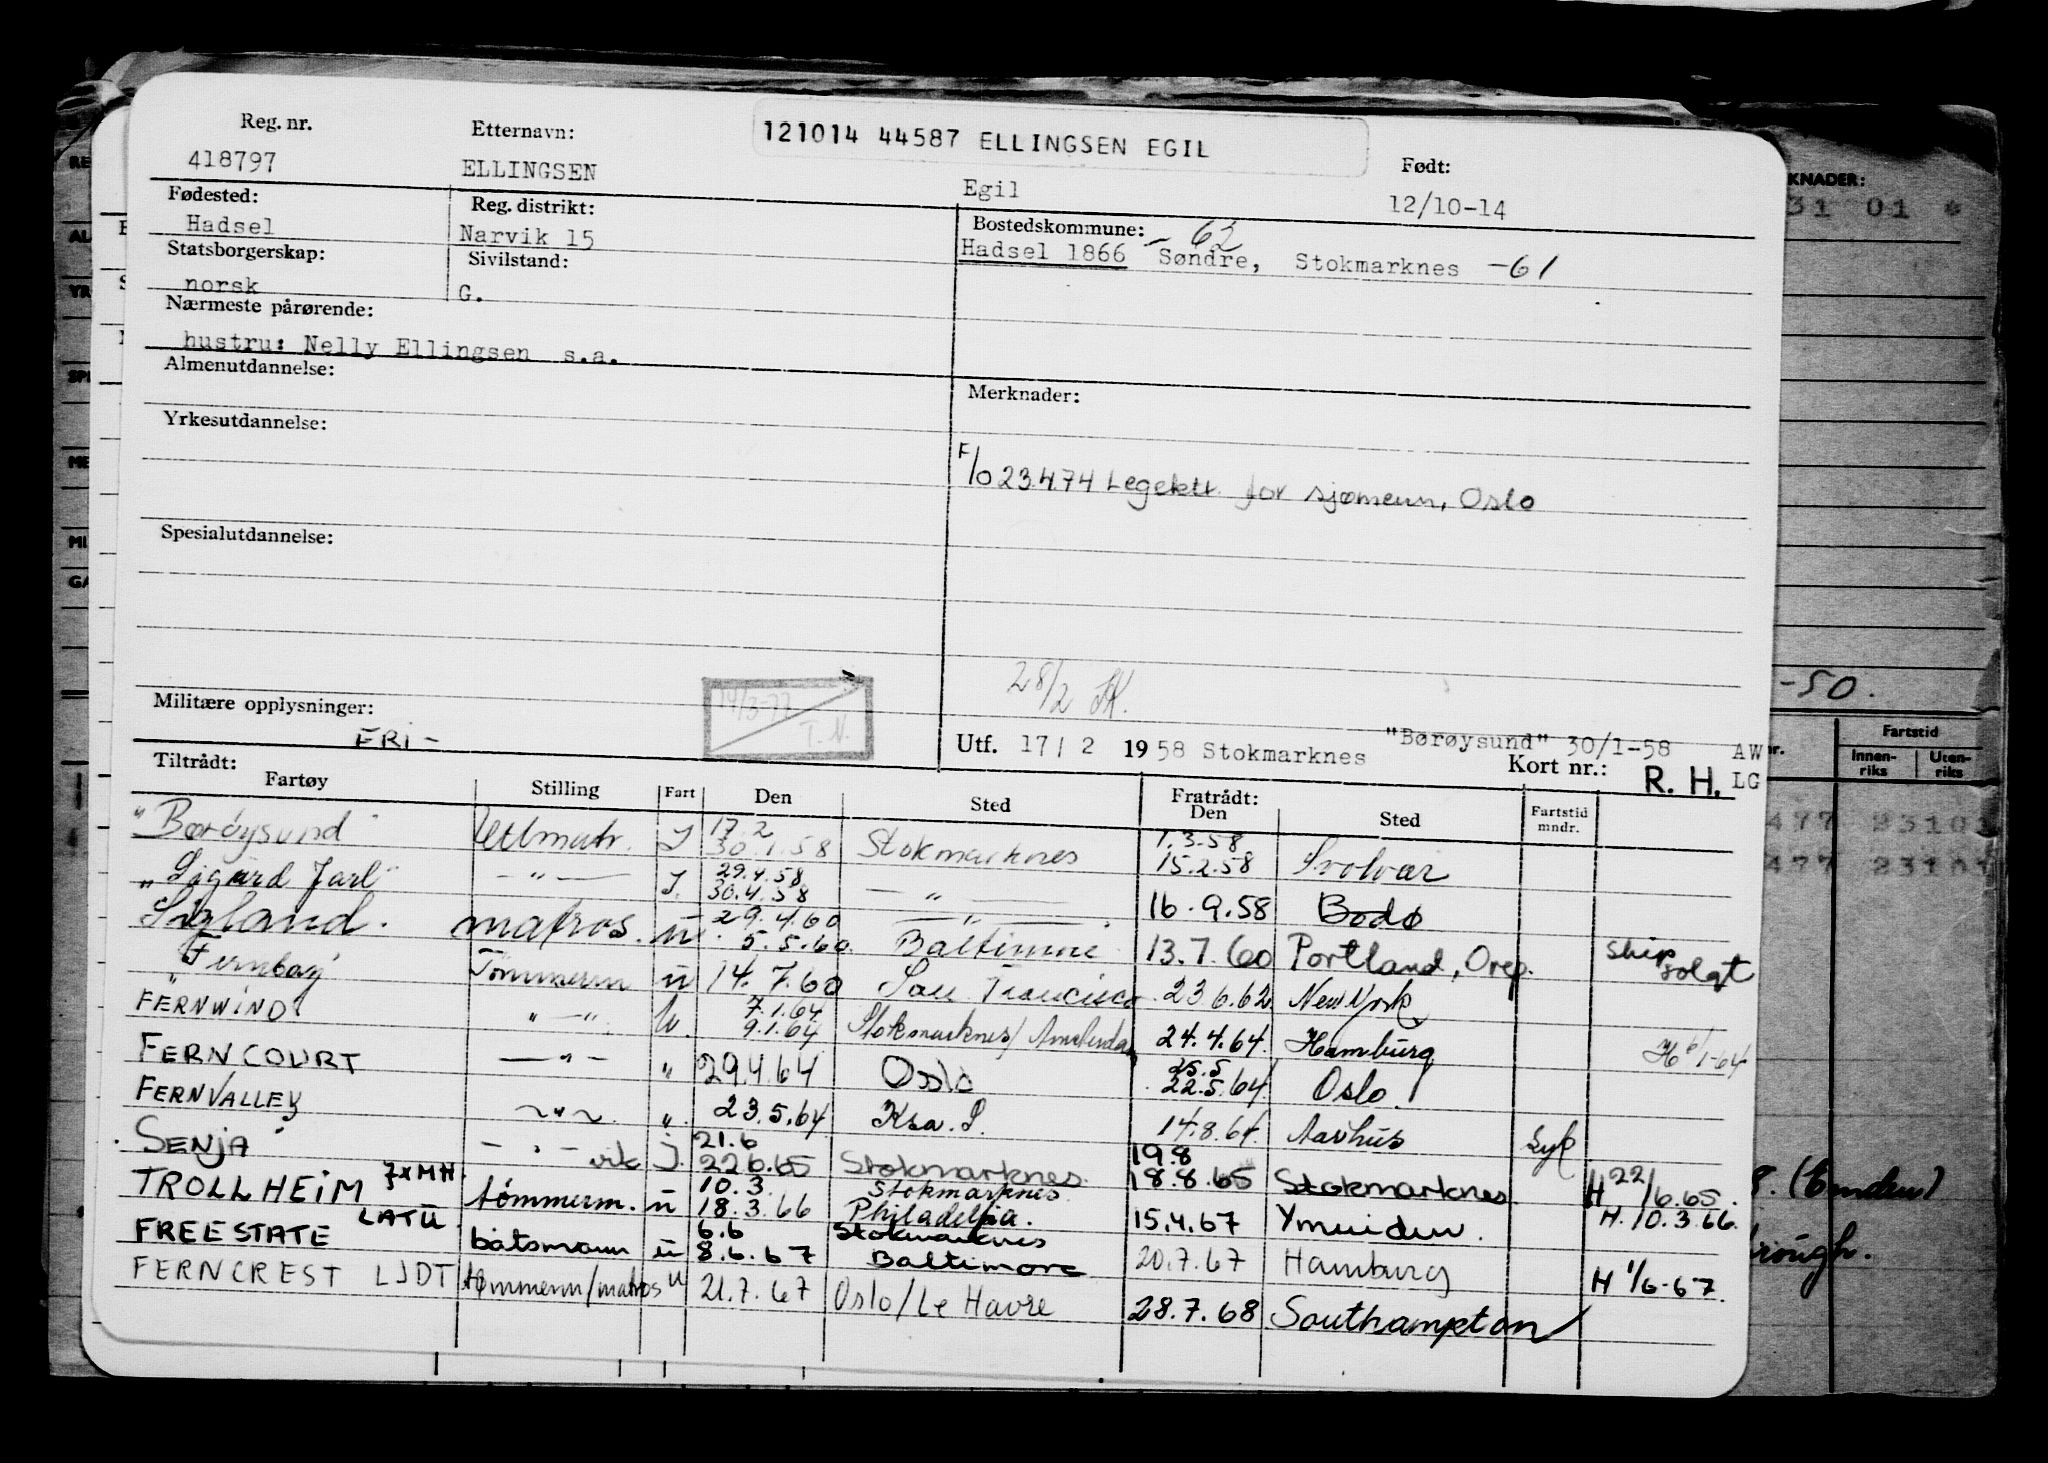 121014 44587 ELLINGSEN EGIL
Reg. nr. Etternavn: Født:
418797 ELLINGSEN Egil 12/10-14
Fødested: Reg. distrikt: Bostedskommune: - 62
Hadsel Narvik 15 Hadsel 1866 Søndre, Stokmarknes -61
Statsborgerskap: Sivilstand:
norsk G.
Nærmeste pårørende:
hustru: Nelly Ellingsen s.a.
Almenutdannelse: Merknader:
Yrkesutdannelse:
F/o 23.4.74 for sjømenn, Oslo
Spesialutdannelse:
28/2
Militære opplysninger: 14/3-77 T. N.
FRI -
Utf. 17/ 2 1958 Stokmarknes "Børøysund" 30/1-58 AW
Kort nr.: R. H. LG
Tiltrådt: Fratrådt:
Fartøy Stilling Fart Den Sted Den Sted Fartstid mndr.
"Børøysund" Lettmatr. I 17.2 30.1.58 Stokmarknes 1.3.58 15.2.58 Svolvær
"Sigurd Jarl" - " - I. 29.4.58 30.4.58 - " - 16.9.58 Bodø
Sigland. matros. u. 29.4.60 5.5.60. - " - Baltimore 13.7.60 Portland, Oreg. skip solgt
"Fernbay" Tømmerm u 14.7.60 San Francisco 23.6.62 New York
FERNWIND " - " U. 7.1.64 9.1.64 Stokmarknes/Amsterdam 24.4.64. Hamburg H 6/1-64
FERNCOURT - " - " 29.4.64 Oslo 25.5 22.5.64 Oslo.
FERNVALLEY ~ " ~ " 23.5.64 Ksa. S. 14.8.64. Aarhus Syk
SENJA - " - vik J. 21.6 22.6.65 Stokmarknes. 19.8 18.8.65 Stokmarknes H 22/6.65.
TROLLHEIM 7XMH. tømmerm. u 10.3 18.3.66 Stokmarknes Philadelpia. 15.4.67 Ymuiden. H. 10.3.66.
FREESTATE LATU båtsmann u 6.6 8.6.67 Stokmarknes Baltimore 20.7.67 Hamburg H 1/6-67.
FERNCREST LJDT tømmerm/matros u 21.7.67 Oslo/Le Havre 28.7.68 Southampton
KNADER:
31 01 *
-50.
Fartstid
Innen-riks Uten-riks
477 23101
477 23101
(Emden)